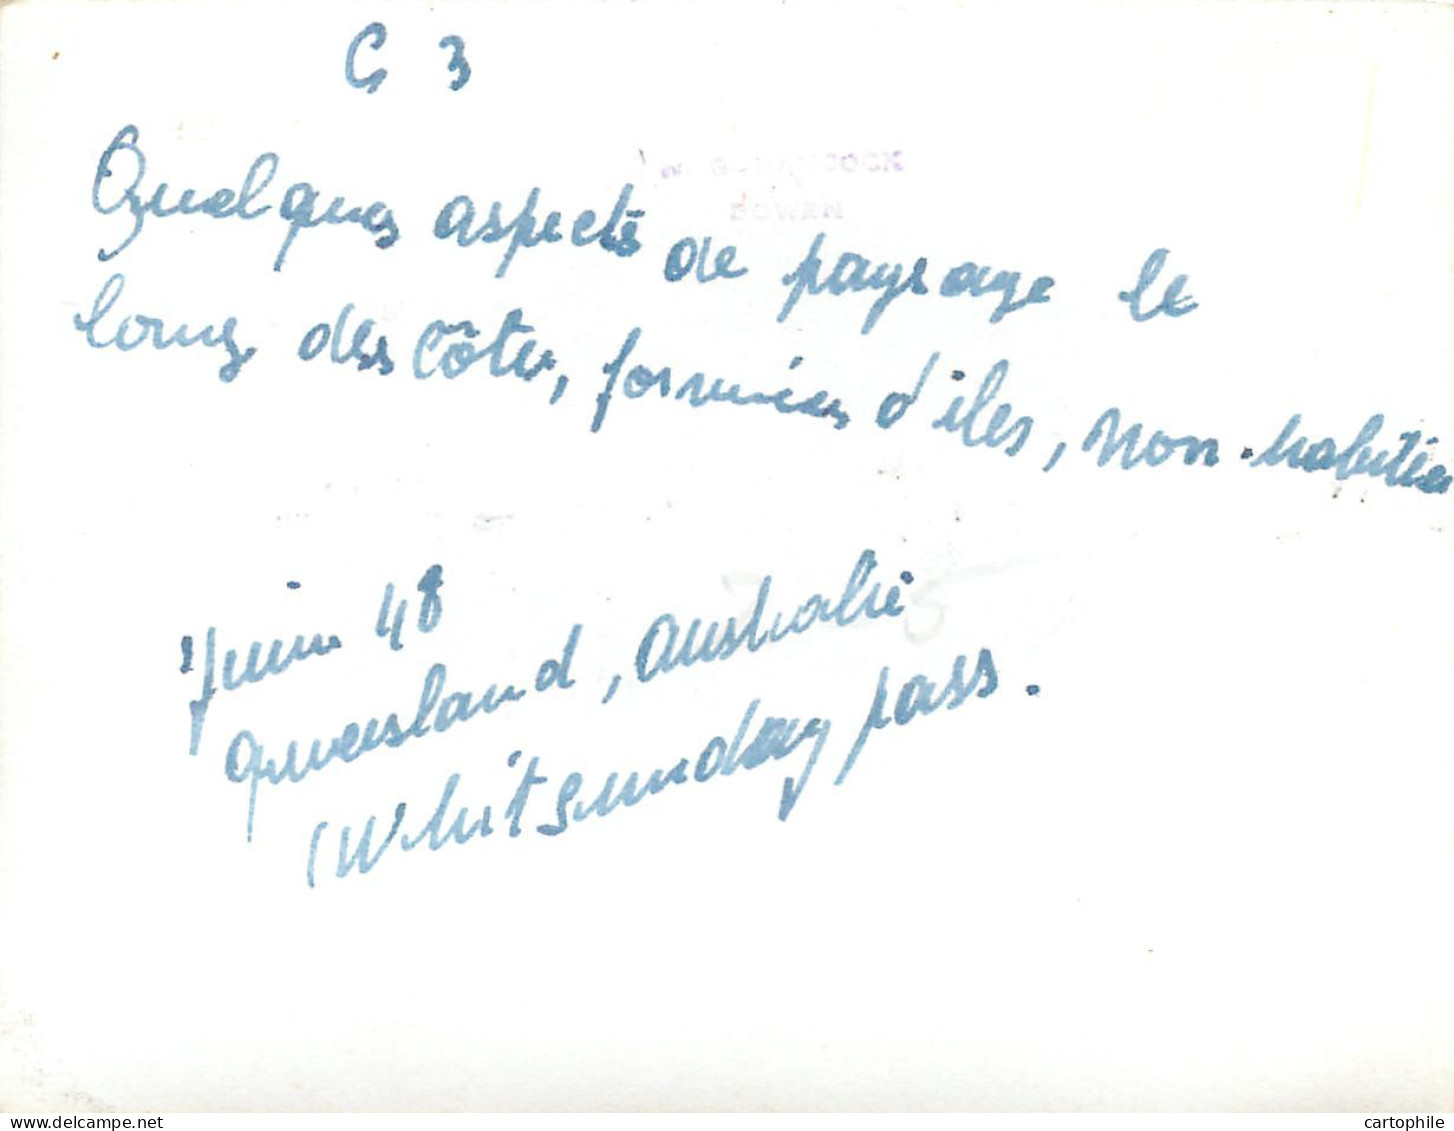 G 3
Quelques aspects de paysage le
long des côtes, formées d'iles, non-habitées
Juin 48
Queensland, Australie
(Whitsunday pass.
HANCOCK
BOWEN
cartophile.com